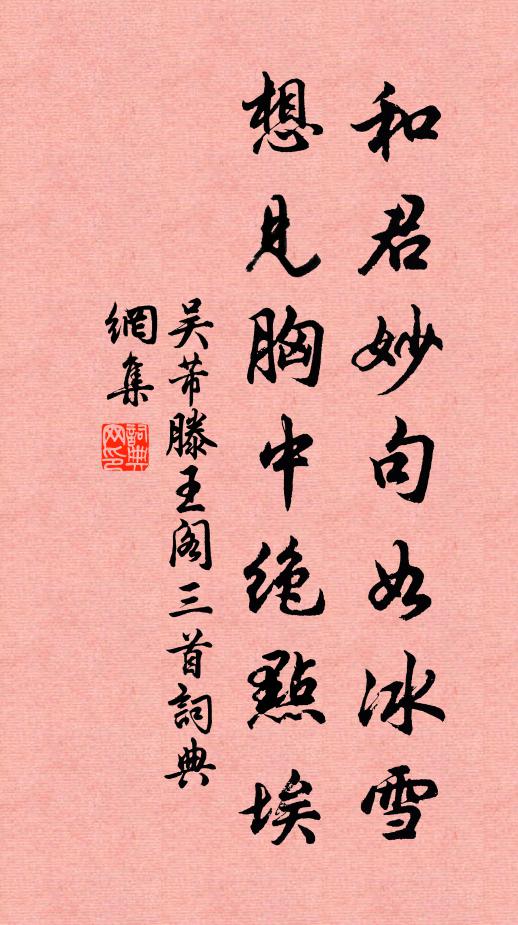 和君妙句如冰雪
想見胸中絶點埃
吳芾滕王阁三首詞典
網集
詞典
网印